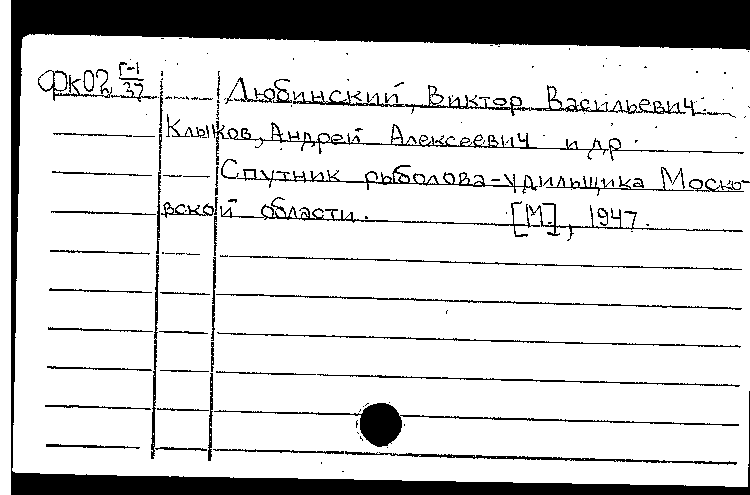 ФК02 Г-1/37 Любинский, Виктор Васильевич.
Клыков, Андрей Алексеевич и др.
Спутник рыболова-удильщика Моско-
вской области. [М], 1947.